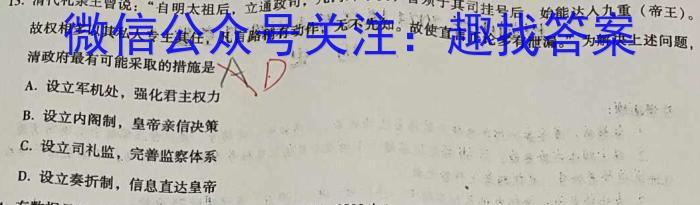 13. 清代礼亲王曾说：“自明太祖后，立通政司，凡内外
须于其司挂号后，始能达人九重（帝王）。
故权相
专主其任，凡有
动作，无不先知。故使直
多有泄漏。”为解决上述问题，
微信公众号关注：趣找答案
清政府最有可能采取的措施是
A D
A. 设立军机处，强化君主权力
B. 设立内阁制，皇帝亲信决策
C. 设立司礼监，完善监察体系
D. 设立奏折制，信息直达皇帝